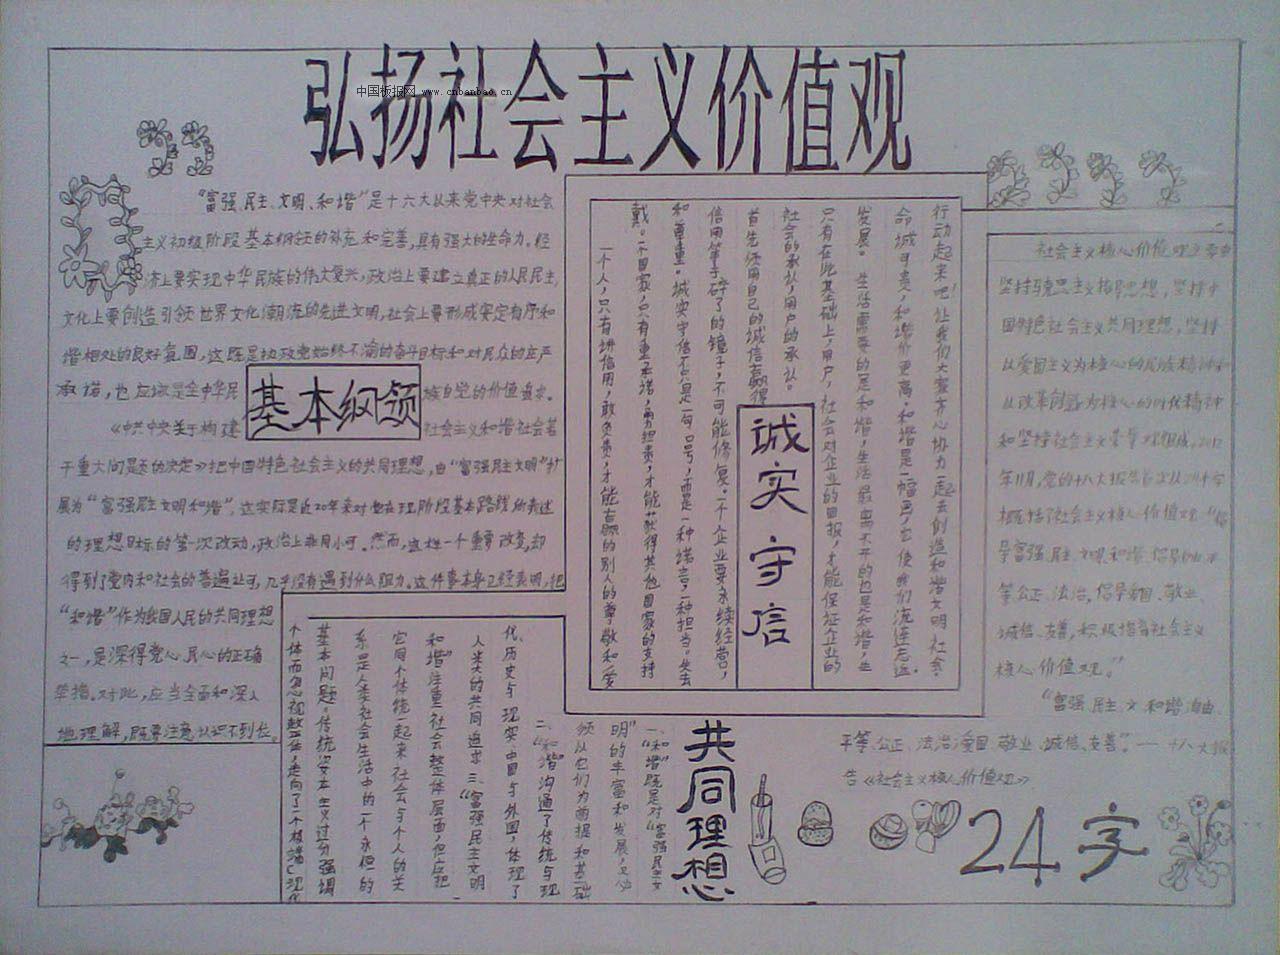 弘扬社会主义价值观
中国板报网 www.cnbanbao.cn
“富强、民主、文明、和谐”是十六大以来党中央对社会
主义初级阶段基本纲领的补充和完善，具有强大的生命力。经
济上要实现中华民族的伟大复兴，政治上要建立真正的人民民主，
文化上要创造引领世界文化潮流的先进文明，社会上要形成安定有序和
谐相处的良好氛围，这既是执政党始终不渝的奋斗目标和对民众的庄严
承诺，也应该是全中华民族自觉的价值追求。
基本纲领
《中共中央关于构建社会主义和谐社会若
干重大问题的决定》把中国特色社会主义的共同理想，由“富强民主文明”扩
展为“富强民主文明和谐”，这实际是近20年来对党在现阶段基本路线所表述
的理想目标的第一次改动，政治上非同小可。然而，这样一个重要改变，却
得到了党内和社会的普遍认可，几乎没有遇到什么阻力。这件事本身已经表明，把
“和谐”作为我国人民的共同理想
之一，是深得党心、民心的正确
举措。对此，应当全面和深入
地理解，既要注意认识不到位
行动起来吧！让我们大家齐心协力一起去创造和谐文明社会。
命诚可贵，和谐价更高。和谐是一幅画，它使我们流连忘返。
发展。生活需要的是和谐，生活最离不开的也是和谐，生
只有在此基础上，用户，社会对企业的回报，才能保证企业的
社会的承认，用户的承认。
首先须用自己的诚信赢得
诚实守信
信用等于碎了的镜子，不可能修复。一个企业要永续经营，
和尊重。诚实守信不只是一句口号，而是一种诺言，一种担当。失去
戴。一个国家，只有重承诺，勇担责，才能获得其他国家的支持
一个人，只有讲信用，敢负责，才能赢的别人的尊敬和爱
共同理想
一、“和谐”既是对“富强民主文
明”的丰富和发展，又必
须以它们为前提和基础
二、“和谐”沟通了传统与现
代、历史与现实、中国与外国，体现了
人类大的共同追求 三、“富强民主文明
和谐”注重社会整体层面，但应把
它同个体统一起来 社会与个人的关
系四是人类社会生活中的一个永恒的
基本问题。传统资本主义过分强调
个体而忽视整体，走向了一个极端（现代
社会主义核心价值观主要由
坚持马克思主义指导思想，坚持中
国特色社会主义共同理想，坚持
以爱国主义为核心的民族精神和
以改革创新为核心的时代精神
和坚持社会主义荣辱观组成。2012
年11月，党的十八大报告首次以24个字
概括了社会主义核心价值观：“倡
导富强、民主、文明、和谐，倡导自由、平
等、公正、法治，倡导爱国、敬业、
诚信、友善，积极培育社会主义
核心价值观。”
“富强、民主、文 和谐、自由、
平等、公正、法治、爱国、敬业、诚信、友善”。——十八大报
告《社会主义核心价值观》
24字